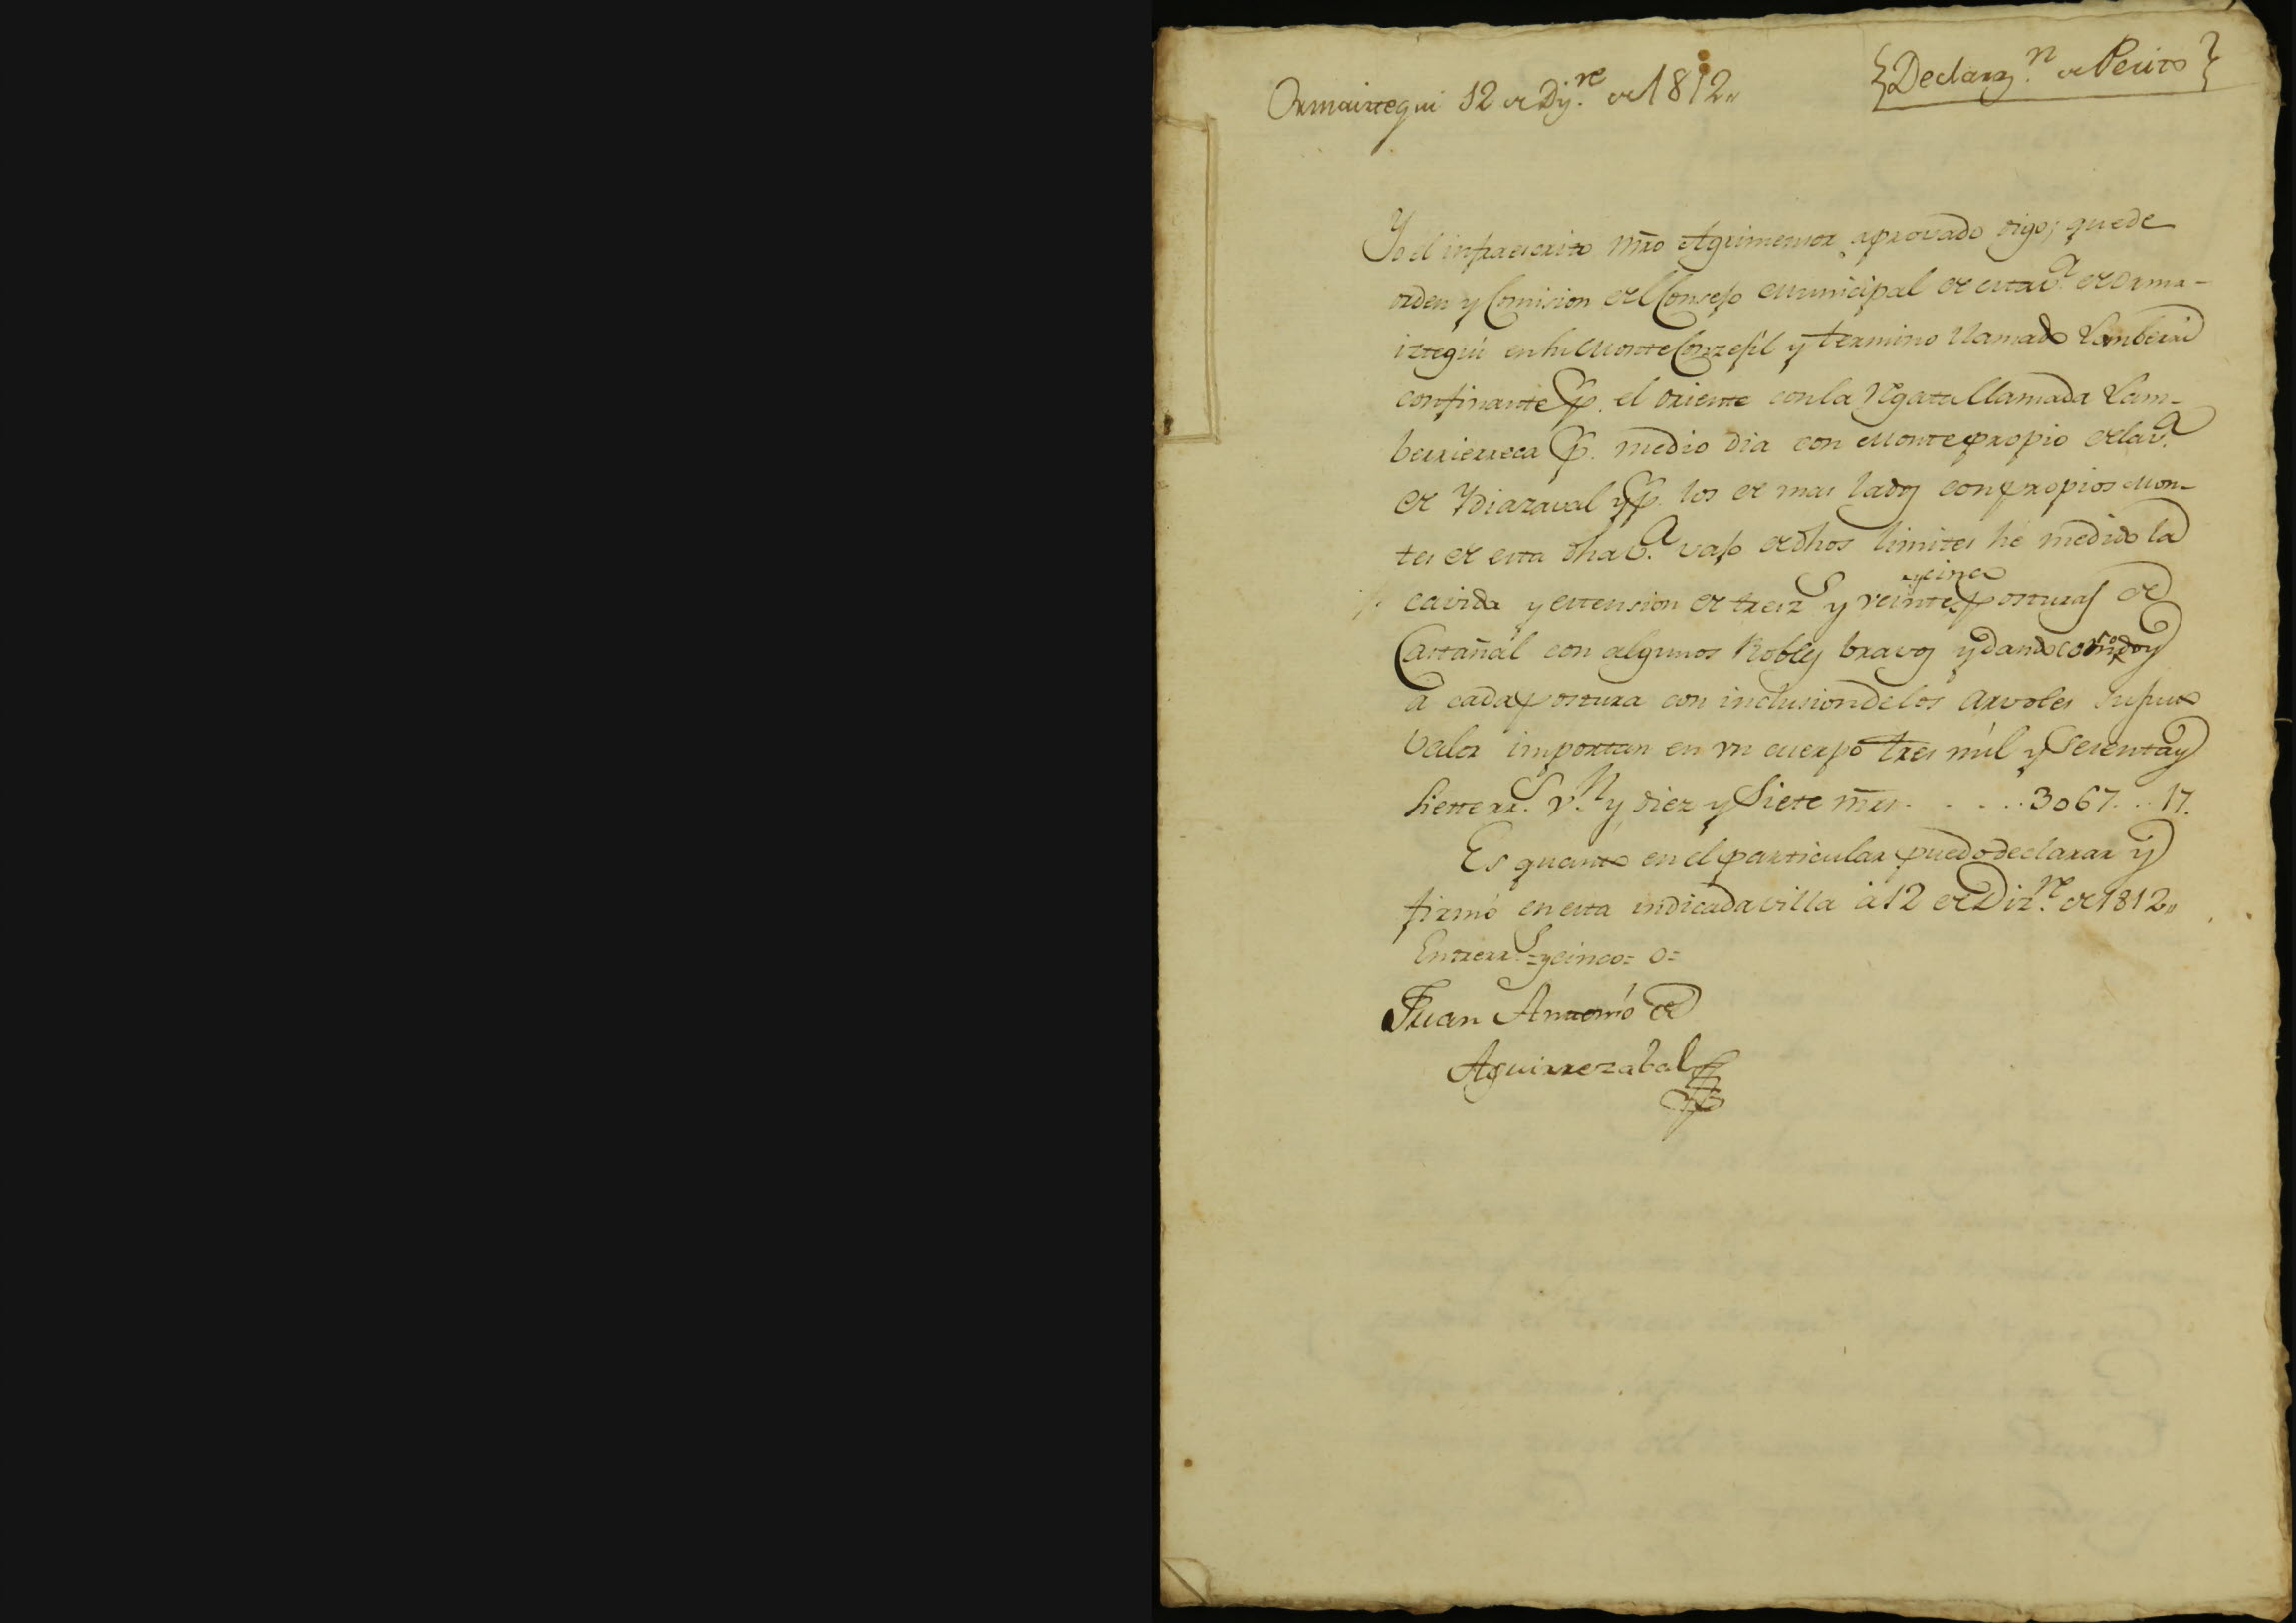 Ormaiztegui 12 de Diz.re de 1812,,
{Declaraz.n de Perito}
Yo el infraescrito Mro Agrimensor aprovado digo; quede
orden y Comision del Consejo Municipal de esta v.a de Orma-
iztegui en su Monte Conzejil y termino llamado Lamberri
confinante p. el oriente con la Regata llamada Lam-
berrierreca p. medio dia con Monte propio de la v.a
de Ydiazaval y p. los de mas lados con propios Mon-
tes de esta dha v.a vajo de dhos limites he medido la
cavida y estension de treiz.s y veinte
y cinco
posturas de
Castañal con algunos Robles bravos y dando
a cada postura con inclusion de los arvoles su justo
valor importan en un cuerpo tres mil y sesenta y
siette rr.s v.n y diez y siete mrs. . . . . 3067. . 17.
Es quanto en el particular puedo declarar y
firmó en esta indicada villa à 12 de Diz.re de 1812,,
Entrerr.s = y cinco = o =
Juan Antonio de
Aguirrezabal